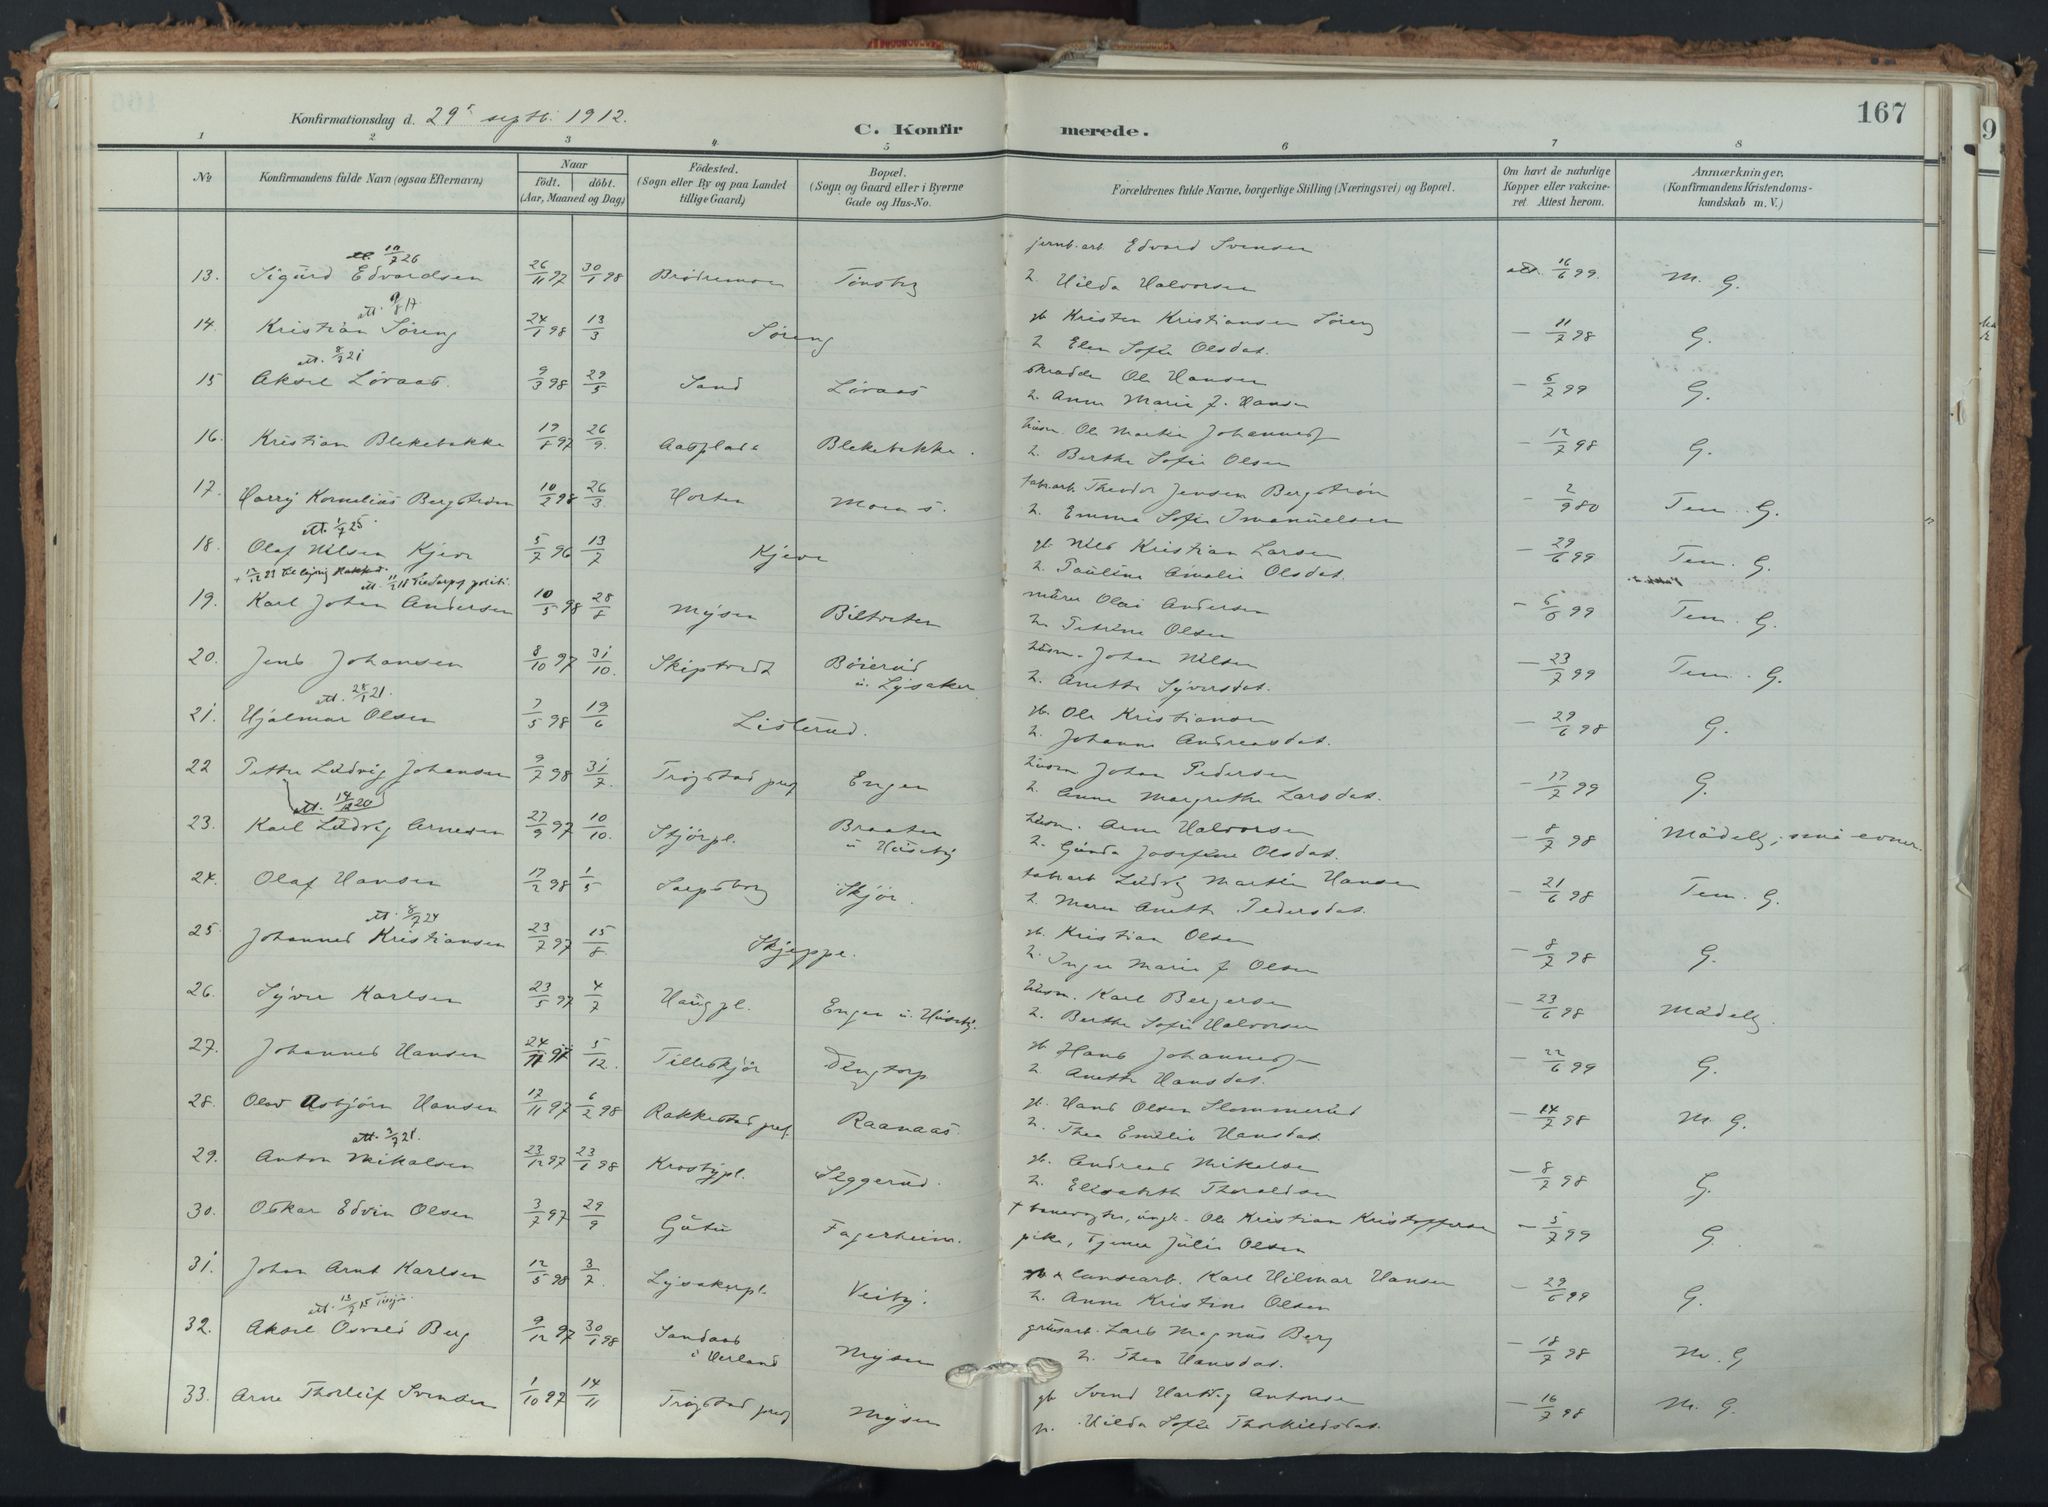 Konfirmationsdag d. 29 septb. 1912.
C. Konfirmerede.
167
1 2 3 4 5 6 7 8
No
Konfirmandens fulde Navn (ogsaa Efternavn)
Naar
födt. döbt.
(Aar, Maaned og Dag)
Födested.
(Sogn eller By og paa Landet
tillige Gaard)
Bopæl.
(Sogn og Gaard eller i Byerne
Gade og Hus-No.
Forældrenes fulde Navne, borgerlige Stilling (Næringsvei) og Bopæl.
Om havt de naturlige
Kopper eller vakcine-
ret Attest herom.
Anmærkninger.
(Konfirmandens Kristendoms-
kundskab m. V.)
13. Sigurd Edvardsen 26/11 97 30/1 98 jernb. arb. Edvard Svensen
h. Hilda Halvorsen att. 16/6 99. M. G.
att. 9/8 17
14. Kristian Søreng 24/1 98 13/3 Søreng gb. Kristen Kristiansen Søreng
h. Elen Sofie Olsdat. – 11/7 98 G.
att. 8/3 21
15 Aksel Løraas. 9/3 98 29/5 Sand Løraas skrædder Ole Hansen
h. Anne Marie J. Hansen – 6/7 99 G.
16. Kristian Blekebakke 26/9. Blekebakke. husm. Ole Martin Johannes
h. Berthe Sofie Olsen – 12/7 98 G.
17. Harry Kornelius Bergström 10/2 98 26/3. Horten Moen s. fabr.arb. Theodor Jensen Bergström
h. Emma Sofie Imanuelsen – 2/9 80 Tem. G.
att. 1/7 25.
18. Olaf Nilsen Kjeve 5/7 96 13/7 Kjeve gb. Nils Kristian Larsen
h. Pauline Amalie Olsdat. – 29/6 99 Tem. G.
19. Karl Johan Andersen 10/5 98 28/8 Mysen murer Olai Andersen
h. Petrine Olsen Tem. G.
20. Jens Johansen 8/10 97 31/10. Skiptvedt Böierud
u. Lysaker husm. Johan Nilsen
h. Anette Syversdat. – 23/7 99 Tem. G.
21. Hjalmar Olsen 7/5 98 19/6 Listerud. gb. Ole Kristiansen
h. Johanne Andreasdat. – 29/6 98 G.
22 Petter Ludvig Johansen 9/7 98 31/7. Trøgstad pref Engen husm Johan Pedersen
h. Anne Margrethe Larsdat. – 17/7 99 G.
23. Karl Ludvig Arnesen 27/9 97 10/10. Skjörpl. Braaten
u Huseby husm. Arne Halvorsen
h. Gunda Josefine Olsdat. – 8/7 98 Mådelig; små evner.
24. Olaf Hansen 17/2 98 1/5 Sarpsborg Skjör. fabr.arb Ludvig Martin Hansen
h. Maren Anette Pedersdat. – 21/6 98 Tem. G.
att. 8/7 24
25. Johannes Kristiansen 23/7 97 15/8 Skjeppe. gb. Kristian Olsen
h. Inger Marie J. Olsen – 8/7 98 G.
26. Syver Karlsen 23/5 97 4/7 Haugpl. Engen u. Huseby. husm. Karl Bergersen
h. Berthe Sofie Halvorsen – 23/6 98 Mådelig.
27. Johannes Hansen 24/11 97 5/12. Tilleskjör gb. Hans Johannes
h. Anette Hansdat. – 22/6 99 G.
28. Olav Asbjörn Hansen 17/11 97 6/2 98 Rakkestad pref. Raanaas. gb. Hans Olsen Slommerud
h. Thea Emilie Hansdat. – 14/7 98 M. G.
29. Anton Mikalsen 23/12 97 23/1 98 Krosbypl. Seggerud. gb. Andreas Mikalsen
h. Elisabeth Thoraldsen – 8/7 98 G.
30. Oskar Edvin Olsen 3/7 97 29/9 Fagerheim. + banevogter, ungk. Ole Kristian Kristoffersen
pike, Tjener Julie Olsen – 5/7 99 G.
31. Johan Arnt Karlsen 12/5 98 3/7. Lysakerpl. Veiby. Karl Hilmar Hansen
h. Anne Kristine Olsen – 29/6 99 G.
32. Aksel Osvald Berg 9/12 97 30/1 98 Sandaas Mysen grusarb. Lars Magnus Berg
h. Thea Hansdat. – 18/7 98 M. G
33. Arne Thorleif Svensen 1/10 97 14/11 Trøgstad pref Mysen gb Svend Hartvig Antonsen
Hilda Sofie Thorkildsdat. – 16/7 98 M. G.